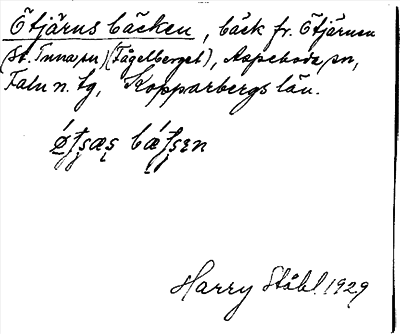 Ötjärns bäcken, bäck fr. Ötjärnen
(St. Tuna sn) (Fågelberget), Aspeboda sn,
Falu n. tg, Kopparbergs län.
Harry Ståhl 1929